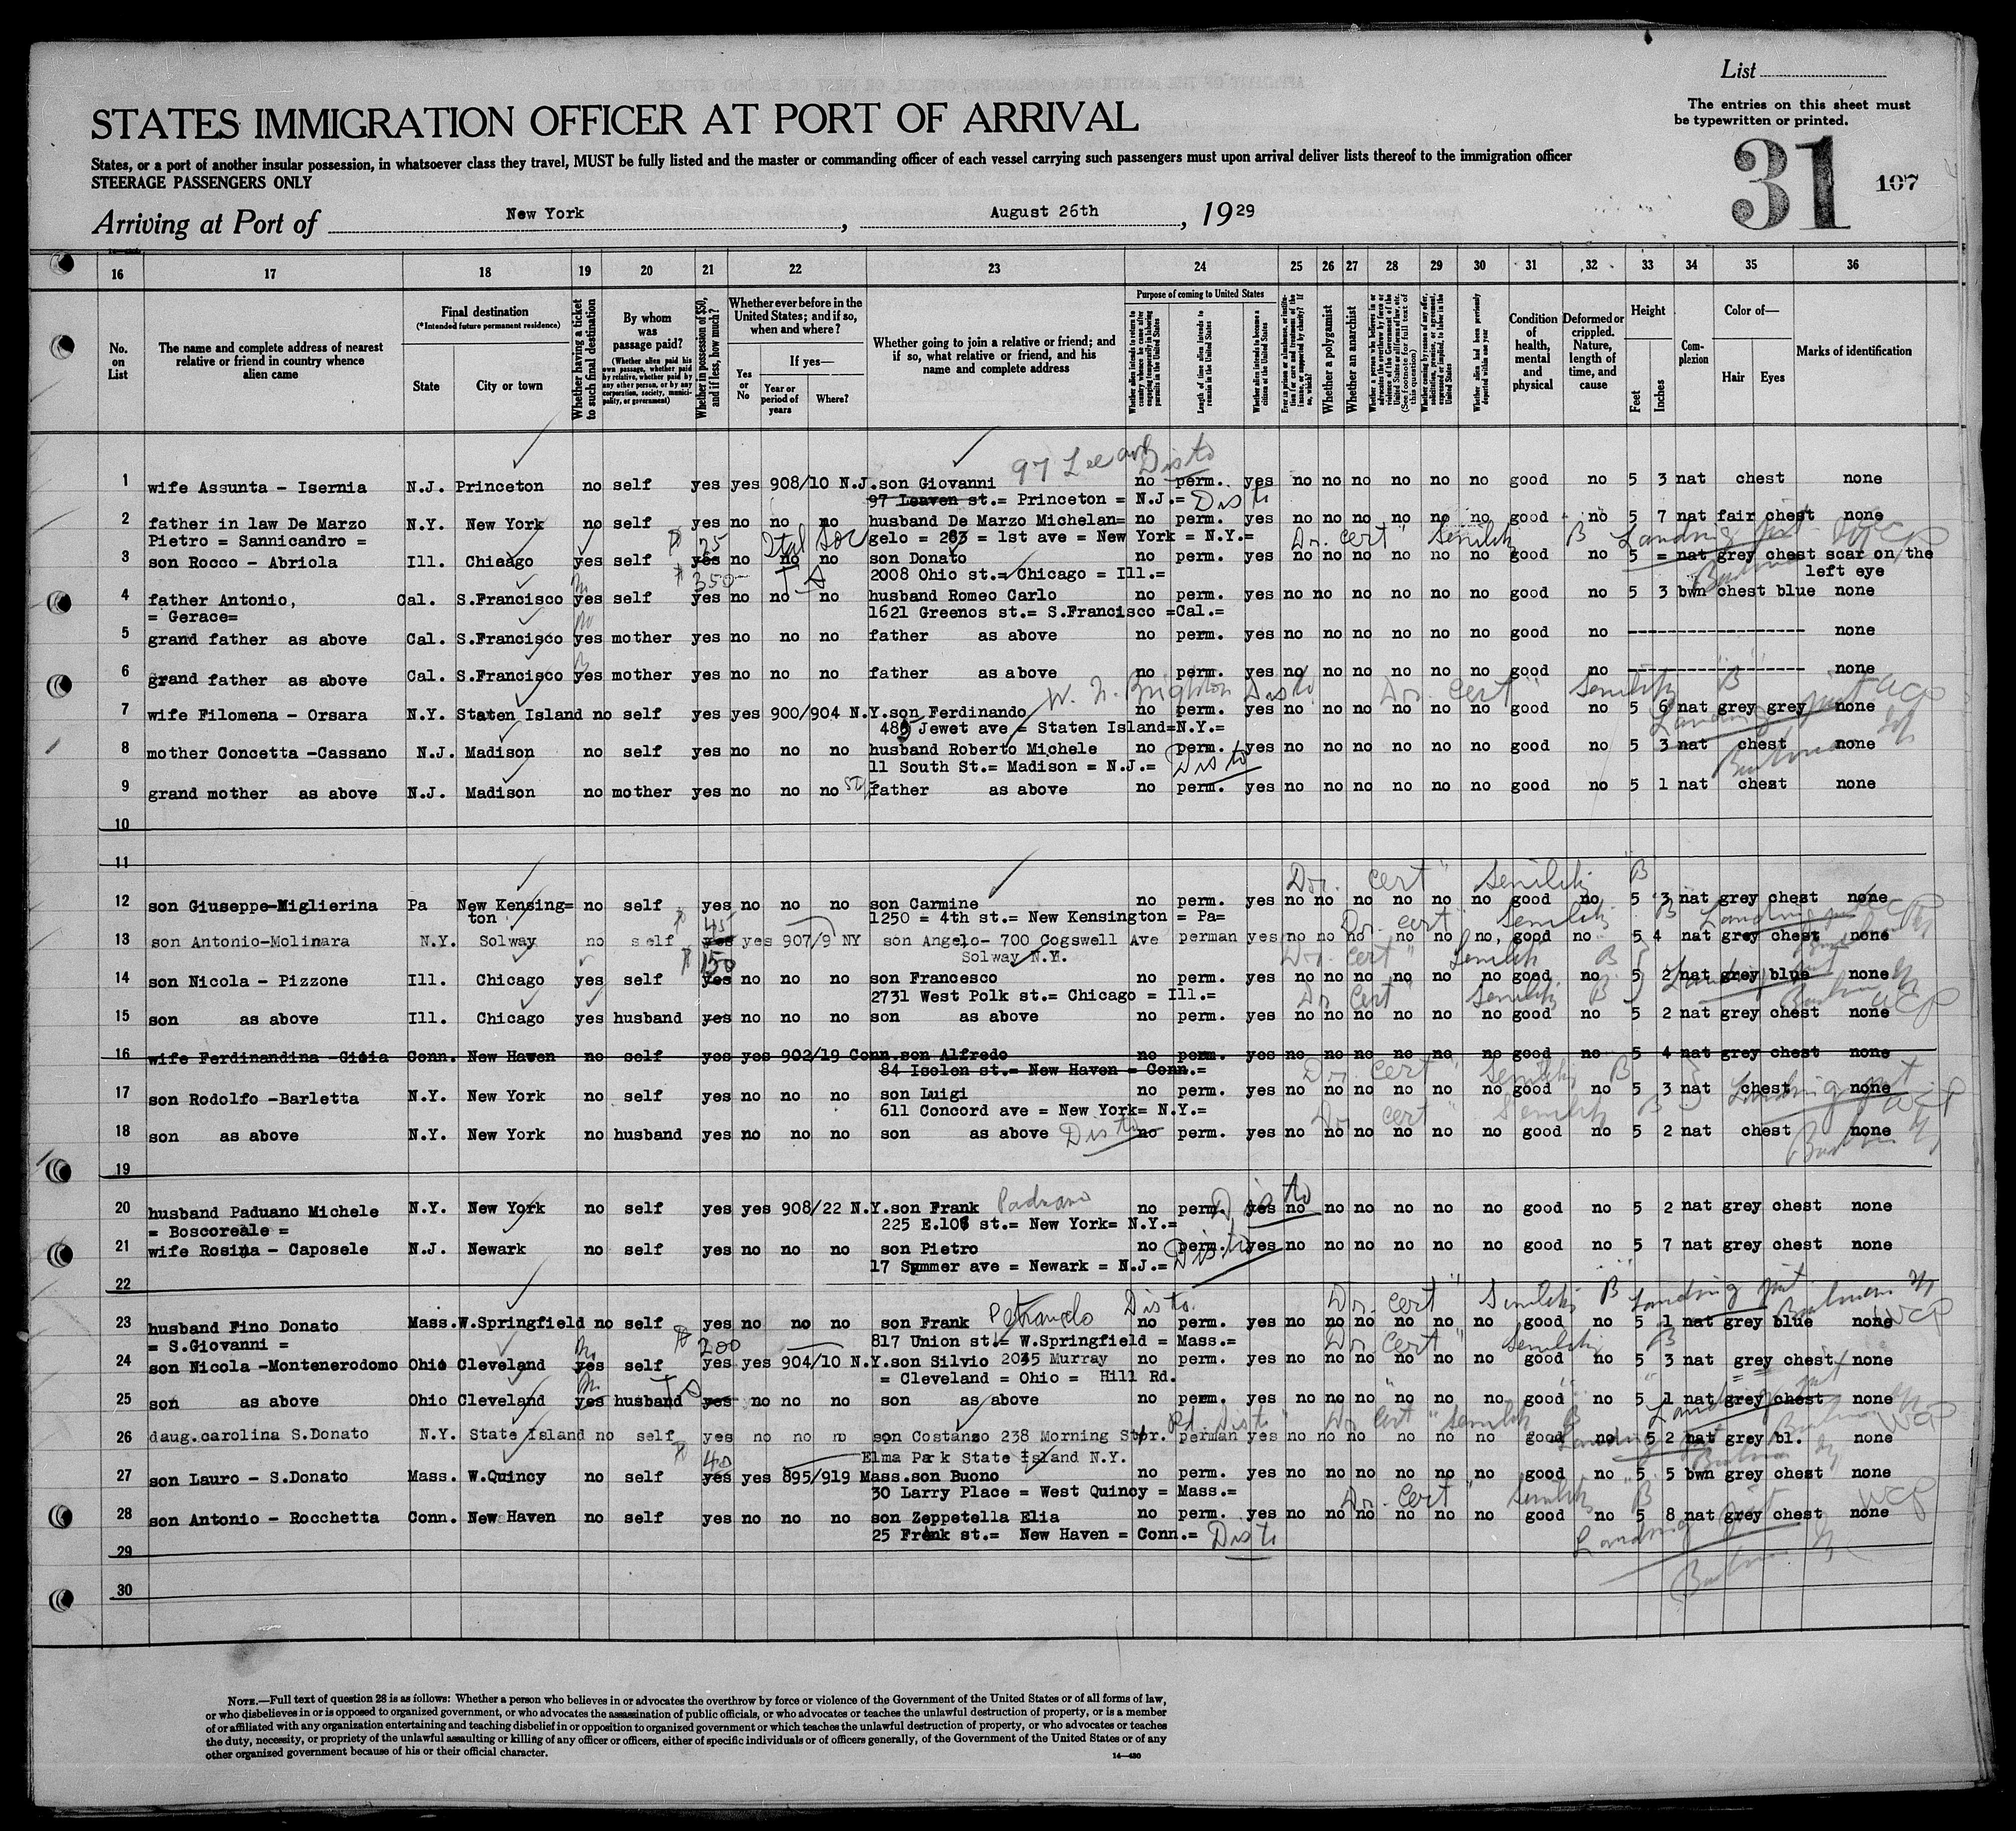 List
The entries on this sheet must
be typewritten or printed.
STATES IMMIGRATION OFFICER AT PORT OF ARRIVAL
States, or a port of another insular possession, in whatsoever class they travel, MUST be fully listed and the master or commanding officer of each vessel carrying such passengers must upon arrival deliver lists thereof to the immigration officer
STEERAGE PASSENGERS ONLY
31 107
Arriving at Port of New York, August 26th, 1929
16 17 18 19 20 21 22 23 24 25 26 27 28 29 30 31 32 33 34 35 36
No. on List
The name and complete address of nearest relative or friend in country whence alien came
Final destination
(*Intended future permanent residence)
State
City or town
Whether having a ticket to such final destination
By whom was passage paid?
(Whether alien paid his own passage, whether paid by relative, whether paid by any other person, or by any corporation, society, municipality, or government)
Whether in possession of $50, and if less, how much?
Whether ever before in the United States; and if so, when and where?
Yes or No
If yes—
Year or period of years
Where?
Whether going to join a relative or friend; and if so, what relative or friend, and his name and complete address
Purpose of coming to United States
Length of time alien intends to remain in the United States
Whether alien intends to become a citizen of the United States
Whether a polygamist
Whether an anarchist
Whether alien had been previously deported within one year
Condition of health, mental and physical
Deformed or crippled. Nature, length of time, and cause
Height
Feet
Inches
Complexion
Color of—
Hair
Eyes
Marks of identification
97 Lee ave Disto
1 wife Assunta - Isernia N.J. Princeton no self yes yes 908/10 N.J. son Giovanni no perm. yes no no no no no no good no 5 3 nat chest none
97 Leaven st.= Princeton = N.J.= Disto
2 father in law De Marzo N.Y. New York no self yes no no no husband De Marzo Michelan= no perm. yes no no no no no no good no 5 7 nat fair chest none
Pietro = Sannicandro = 25 Ital Soc gelo = 263 = 1st ave = New York = N.Y.= Dr. cert Senility B Landing
3 son Rocco - Abriola Ill. Chicago yes self yes no no no son Donato no perm. yes no no no no no no good no 5 = nat grey chest scar on the
350 2008 Ohio st.= Chicago = Ill.= left eye
4 father Antonio, Cal. S.Francisco yes self yes no no no husband Romeo Carlo no perm. yes no no no no no no good no 5 3 bwn chest blue none
= Gerace= 1621 Greenos st.= S.Francisco =Cal.=
5 grand father as above Cal. S.Francisco yes mother yes no no no father as above no perm. yes no no no no no no good no ------------------ none
6 grand father as above Cal. S.Francisco yes mother yes no no no father as above no perm. yes no no no no no no good no ------------------ none
W. N. Brighton Disto Dr. cert Senility B
7 wife Filomena - Orsara N.Y. Staten Island no self yes yes 900/904 N.Y. son Ferdinando no perm. yes no no no no no no good no 5 6 nat grey grey none
485 Jewet ave = Staten Island=N.Y.= Landing
8 mother Concetta -Cassano N.J. Madison no self yes no no no husband Roberto Michele no perm. yes no no no no no no good no 5 3 nat chest none
11 South St.= Madison = N.J.= Disto
9 grand mother as above N.J. Madison no mother yes no no no father as above no perm. yes no no no no no no good no 5 1 nat chest none
10
11
Dr. cert Senility B
12 son Giuseppe-Miglierina Pa New Kensing= no self yes no no no son Carmine no perm. yes no no no no no no good no 5 3 nat grey chest none
ton 45 1250 = 4th st.= New Kensington = Pa= Dr. cert Senility B Landing
13 son Antonio-Molinara N.Y. Solway no self yes yes 907/9 NY son Angelo- 700 Cogswell Ave perman yes no no no no no no, good no 5 4 nat grey chest none
150 Solway N.Y. Dr. cert Senility B
14 son Nicola - Pizzone Ill. Chicago yes self yes no no no son Francesco no perm. yes no no no no no no good no 5 2 nat grey blue none
2731 West Polk st.= Chicago = Ill.= Dr. cert Senility B
15 son as above Ill. Chicago yes husband yes no no no son as above no perm. yes no no no no no no good no 5 2 nat grey chest none
16 wife Ferdinandina -Gioia Conn. New Haven no self yes yes 902/19 Conn. son Alfredo no perm. yes no no no no no no good no 5 4 nat grey chest none
84 Iselen st.= New Haven = Conn.= Dr. cert Senility B
17 son Rodolfo -Barletta N.Y. New York no self yes no no no son Luigi no perm. yes no no no no no no good no 5 3 nat chest none
611 Concord ave = New York= N.Y.= Dr. cert Senility B
18 son as above N.Y. New York no husband yes no no no son as above Disto no perm. yes no no no no no no good no 5 2 nat chest none
19
20 husband Paduano Michele N.Y. New York no self yes yes 908/22 N.Y. son Frank Paduano no perm. Disto yes no no no no no no good no 5 2 nat grey chest none
= Boscoreale = 225 E.106 st.= New York= N.Y.=
21 wife Rosina - Caposele N.J. Newark no self yes no no no son Pietro no perm. yes no no no no no no good no 5 7 nat grey chest none
17 Summer ave = Newark = N.J.= Disto
22
Dr. cert Senility B Landing
23 husband Fino Donato Mass. W.Springfield no self yes no no no son Frank Petrangelo Disto no perm. yes no no no no no no good no 5 1 nat grey blue none
= S.Giovanni = 200 817 Union st.= W.Springfield = Mass.= Dr. cert Senility B
24 son Nicola -Montenerodomo Ohio Cleveland yes self yes yes 904/10 N.Y. son Silvio 2035 Murray no perm. yes no no no no no no good no 5 3 nat grey chest none
= Cleveland = Ohio = Hill Rd.
25 son as above Ohio Cleveland yes husband yes no no no son as above no perm. yes no no no no no no good no 5 1 nat grey chest none
Disto Dr. cert Senility B
26 daug.carolina S.Donato N.Y. State Island no self yes no no no son Costanso 238 Morning Str. perman yes no no no no no no good no 5 2 nat grey bl. none
40 Elma Park State Island N.Y.
27 son Lauro - S.Donato Mass. W.Quincy no self yes yes 895/919 Mass. son Buono no perm. yes no no no no no no good no 5 5 bwn grey chest none
30 Larry Place = West Quincy = Mass.= Dr. cert Senility B
28 son Antonio - Rocchetta Conn. New Haven no self yes no no no son Zeppetella Elia no perm. yes no no no no no no good no 5 8 nat grey chest none
25 Frank st.= New Haven = Conn.= Disto Landing
29
30
NOTE.—Full text of question 28 is as follows: Whether a person who believes in or advocates the overthrow by force or violence of the Government of the United States or of all forms of law,
or who disbelieves in or is opposed to organized government, or who advocates the assassination of public officials, or who advocates or teaches the unlawful destruction of property, or is a member
of or affiliated with any organization entertaining and teaching disbelief in or opposition to organized government or which teaches the unlawful destruction of property, or who advocates or teaches
the duty, necessity, or propriety of the unlawful assaulting or killing of any officer or officers, either of specific individuals or of officers generally, of the Government of the United States or of any
other organized government because of his or their official character.
14—430